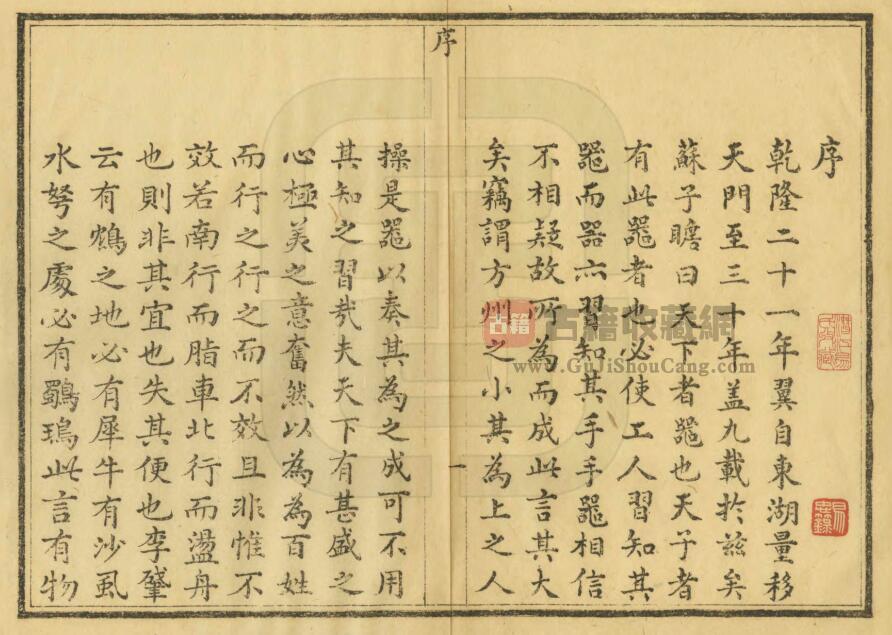 序
乾隆二十一年翼自東湖量移
天門至三十年盖九載扵兹矣
蘇子瞻曰天下者噐也天子者
有此噐者也必使工人習知其
噐而器亦習知其手手噐相信
不相疑故所為而成此言其大
矣竊謂方州之小其為上之人
序
一
操是噐以奏其為之成可不用
其知之習㢤夫天下有甚盛之
心極美之意奮然以為為百姓
而行之行之而不效且非惟不
效若南行而脂車北行而盪舟
也則非其宜也失其便也李肇
云有鶴之地必有犀牛有沙虱
水弩之處必有鸀鳿此言有物
古籍
古籍收藏網
www.GuJiShouCang.com